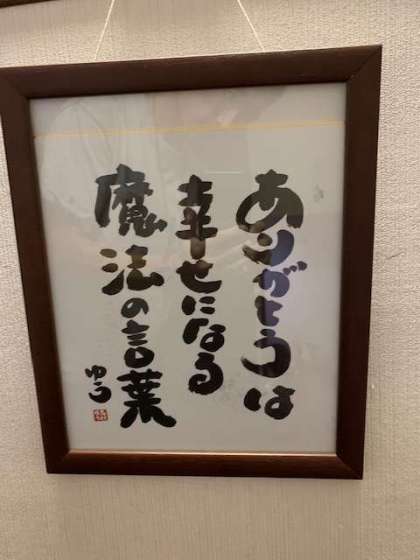 ありがとうは
幸せになる
魔法の言葉
ゆう